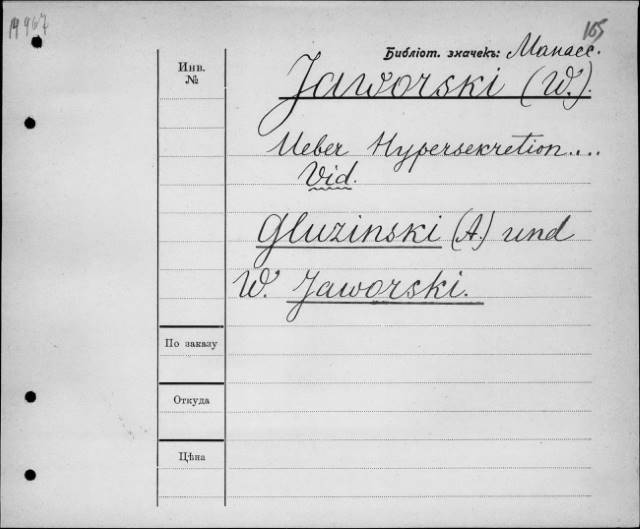 165
Библіот. значекъ: Манасс.
Инв.
№
Jaworski (W.).
Ueber Hypersekretion....
Vid.
Gluzinski (A.) und
W. Jaworski.
По заказу
Откуда
Цѣна